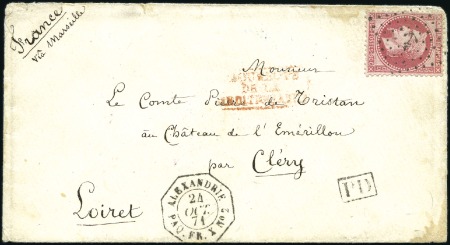 France
via Marseille
Monsieur
Le Comte de Tristan
au Château de l'Emérillon
par Cléry
Loiret
ALEXANDRIE
24
OCT.
71
PAQ. FR. X No 2
PD